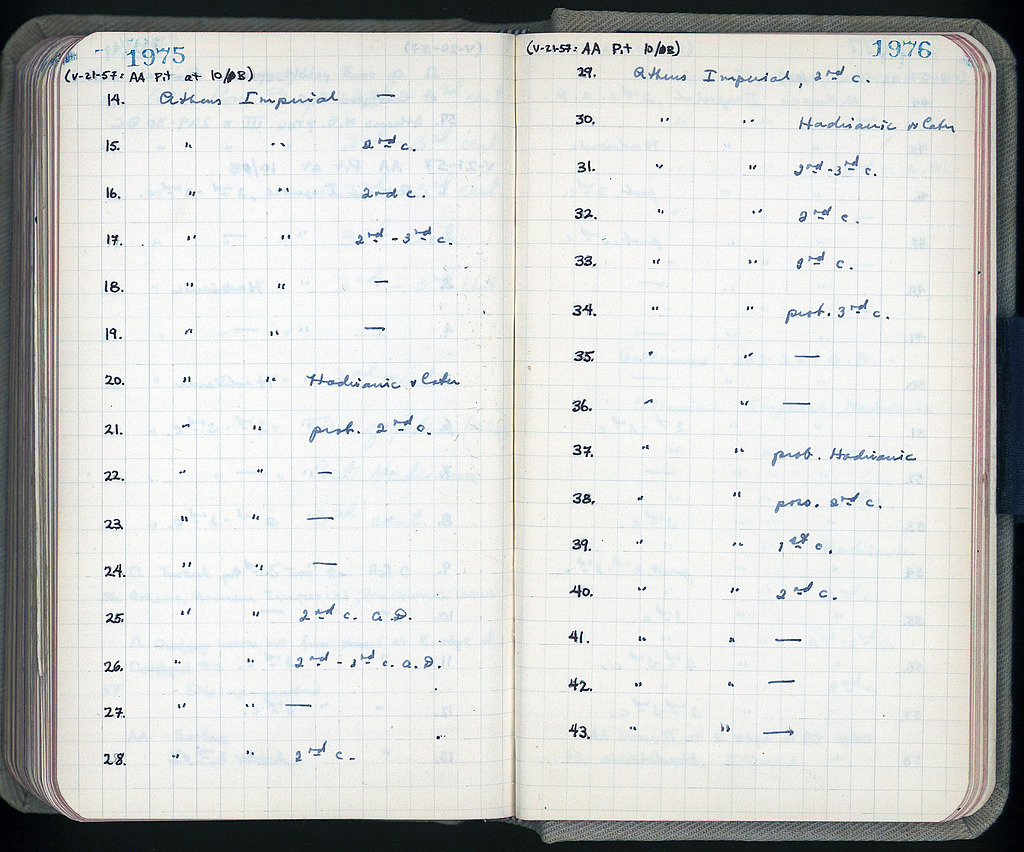 1975
(V-21-57: AA Pit at 10/ΛB)
14. Athens Imperial —
15. " " 2nd c.
16. " " 2nd c.
17. " " 2nd - 3rd c.
18. " " —
19. " " —
20. " " Hadrianic & later
21. " " prob. 2nd c.
22. " " —
23. " " —
24. " " —
25. " " 2nd c. A.D.
26. " " 2nd - 3rd c. A.D.
27. " " —
28. " " 2nd c.
(V-21-57: AA Pit 10/ΛB) 1976
29. Athens Imperial, 2nd c.
30. " " Hadrianic & later
31. " " 2nd-3rd c.
32. " " 2nd c.
33. " " 3rd c.
34. " " prob. 3rd c.
35. " " —
36. " " —
37. " " prob. Hadrianic
38. " " poss. 2nd c.
39. " " 1st c.
40. " " 2nd c.
41. " " —
42. " " —
43. " " —